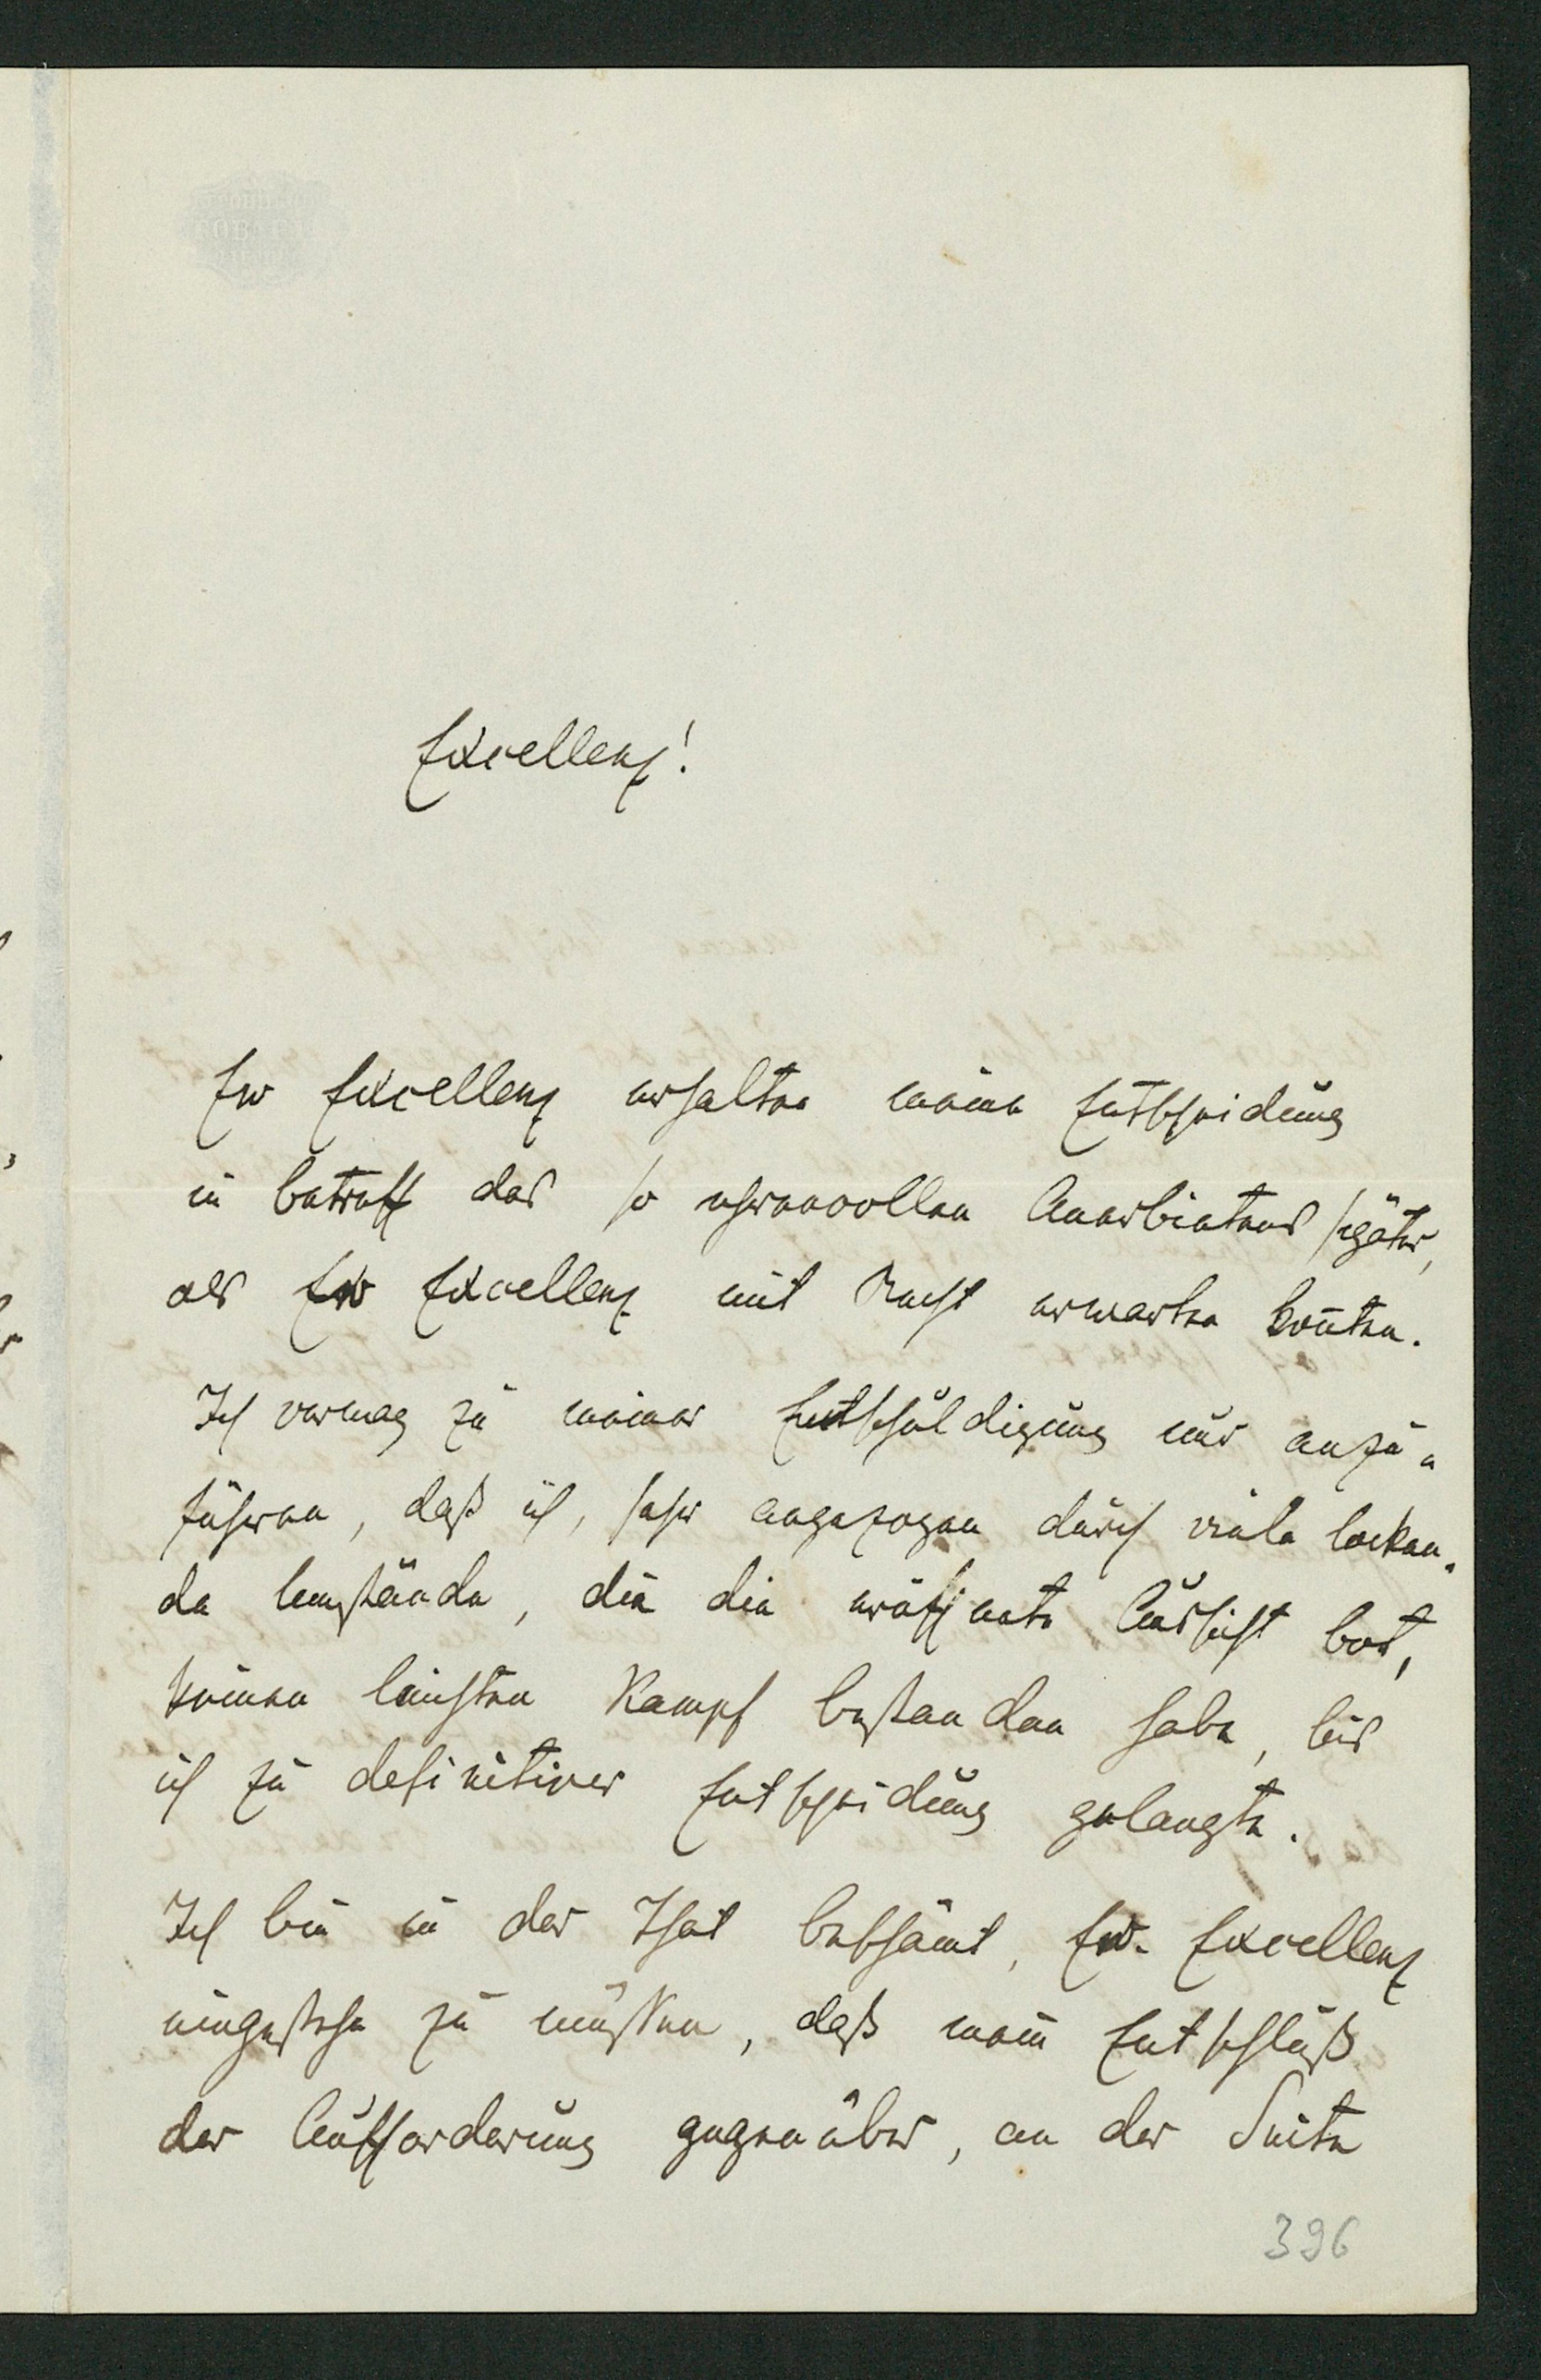 Excellenz!
Ew Excellenz erhalten meine Entscheidung
in betreff des so ehrenvollen Anerbietens später,
als Ew Excellenz mit Recht erwarten konnten.
Ich vermag zu meiner Entschuldigung nur anzu-
führen, daß ich, sehr angezogen durch viele locken-
de Umstände, die die eröffnete Aussicht bot,
keinen leichten Kampf bestanden habe, bis
ich zu definitiver Entscheidung gelangte.
Ich bin in der That beschämt, Ew. Excellenz
eingestehn zu müssen, daß mein Entschluß
der Aufforderung gegenüber, an der Seite
396